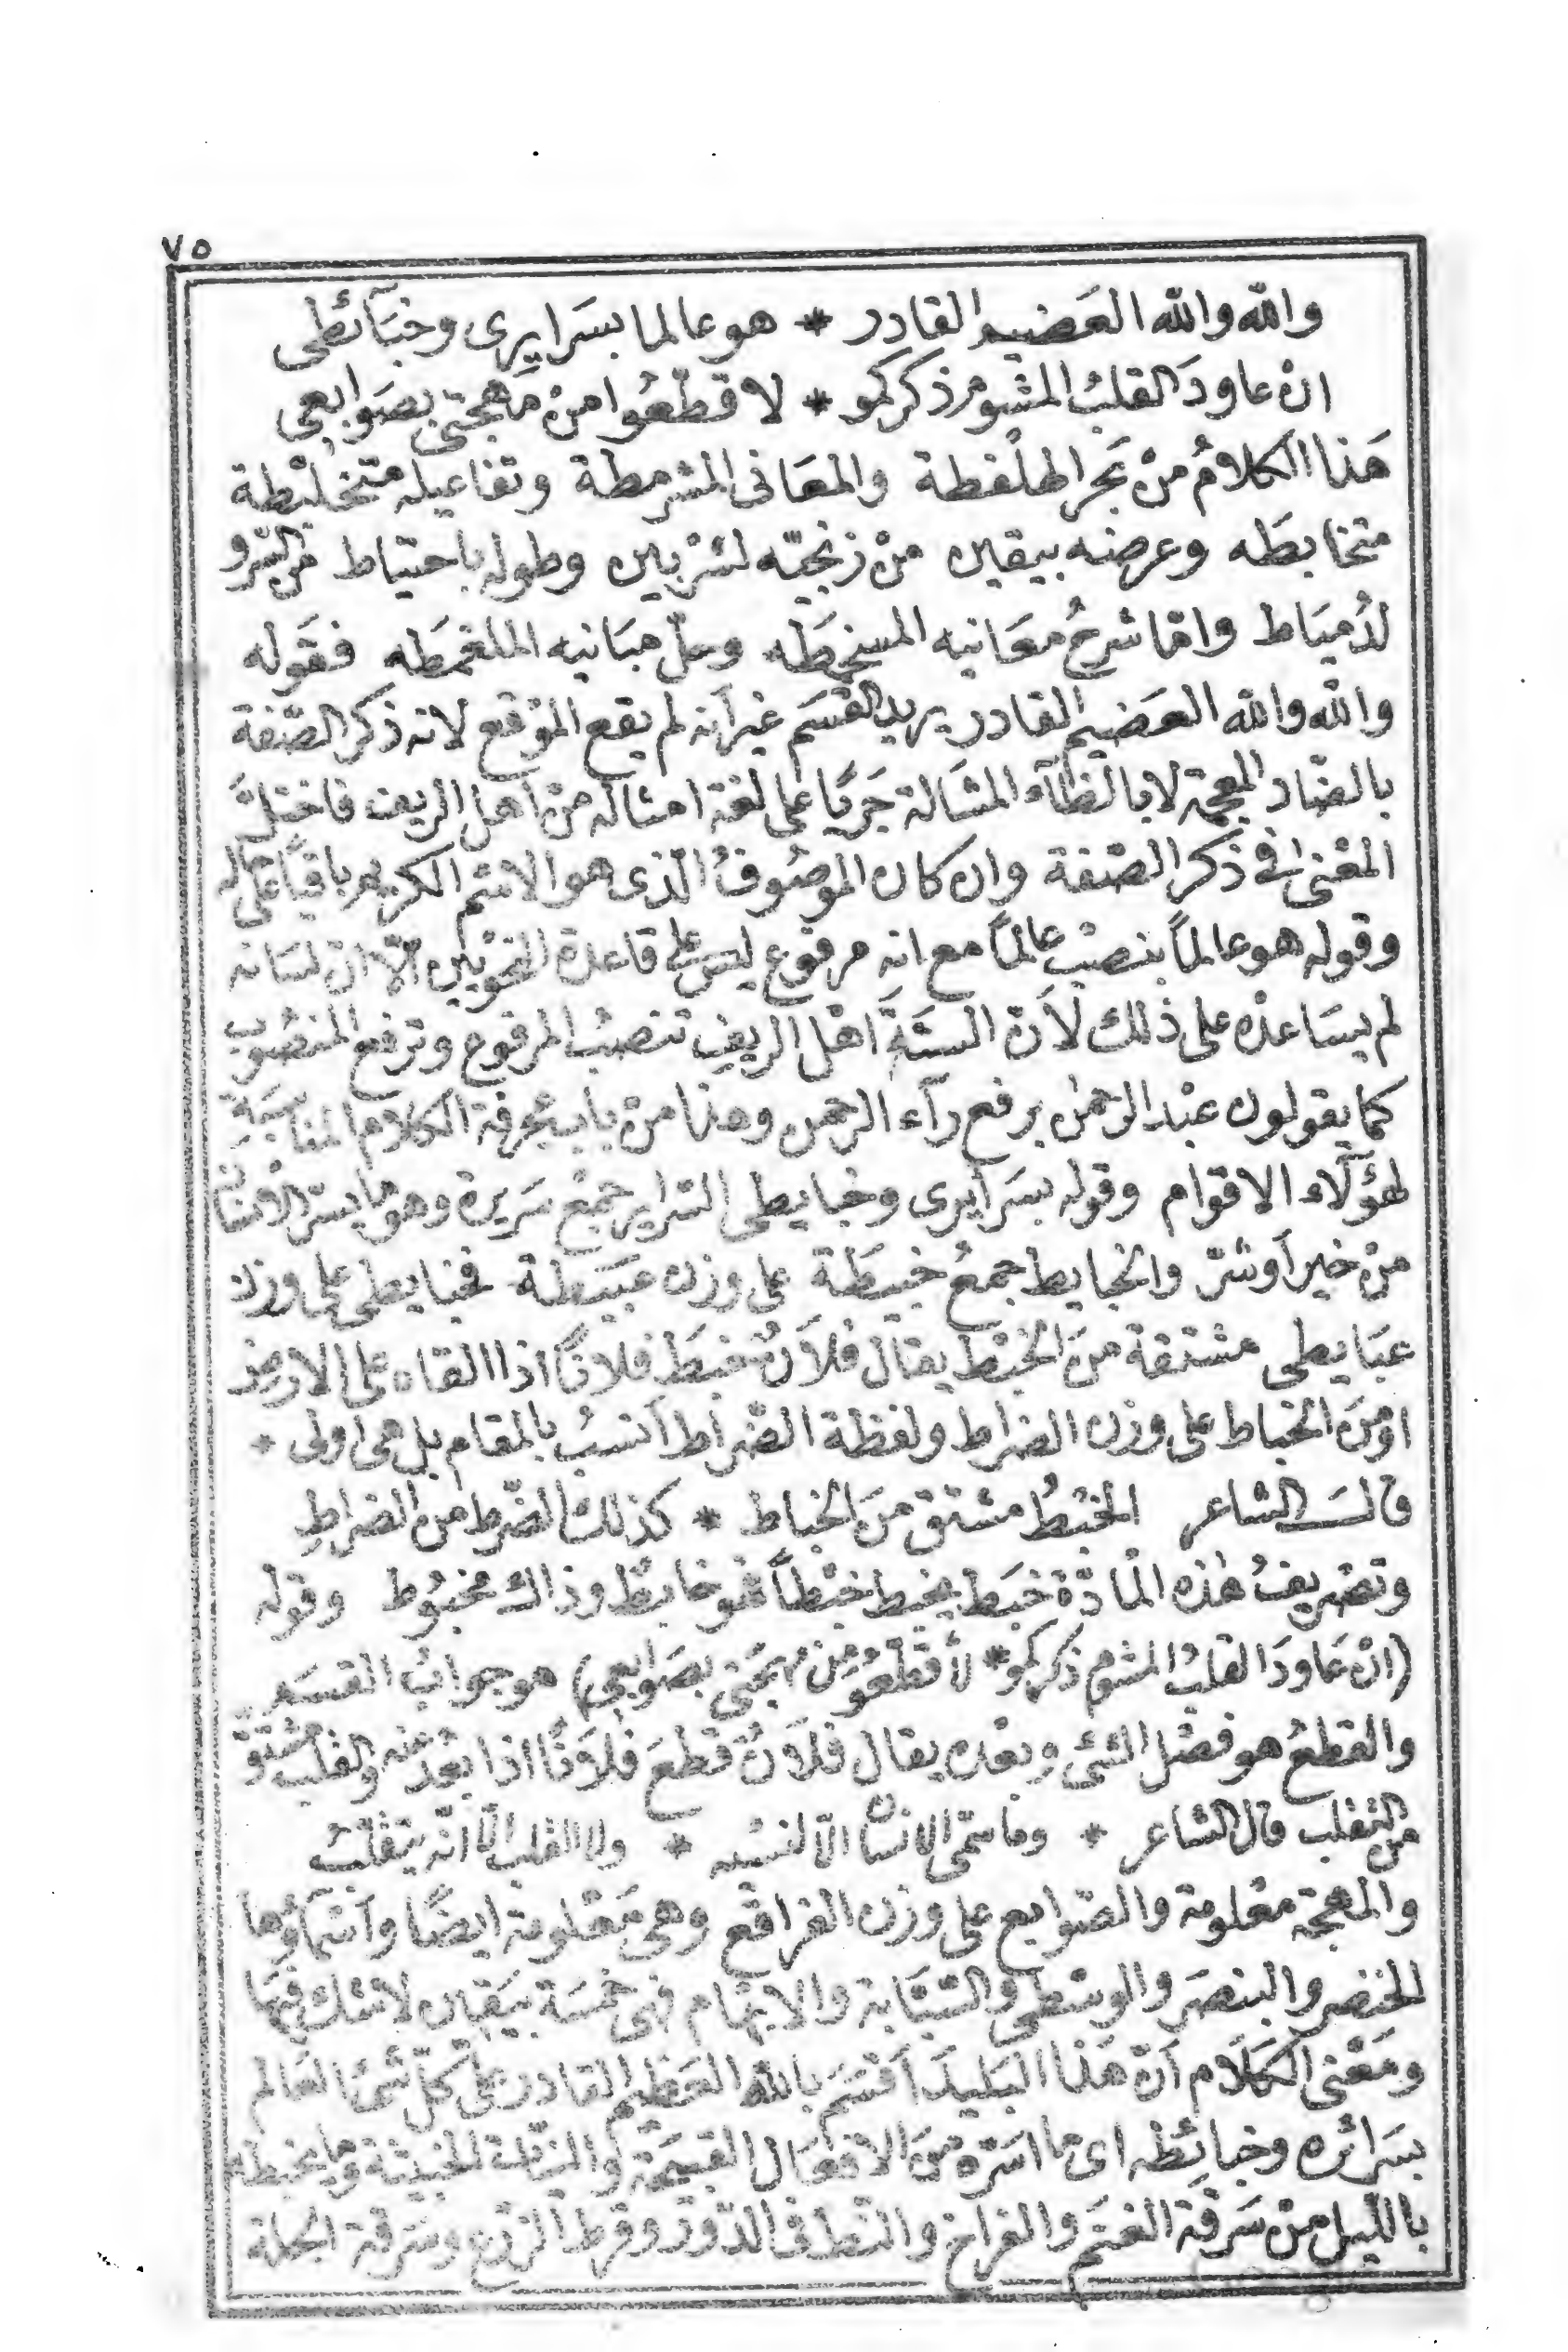 ٧٥
والله والله العَضيم القادر * هو عالما بسَرايرى وخبَآئطى
انْ عاودَ القلبُ المشوم ذكركمو * لاقطّعُوا منْ مَهجتى بصَوابعى
هَذا الكلامُ منْ بَحر الهلْفطة والمعَانى المشرمطة وتفاعيله متخلبْطة
متخابطَه وعرضه بيقين منْ زنجيّه لشربين وطوله باحتياط من السّرو
لدُمياط وامّا شرحُ معَانيه المسخمَطَه وحلّ مبَانيه الملغمَطه فقَوله
والله والله العَضيم القادر يريد القسَم غير أنه لم يقع الموْقع لانه ذكر الصّفة
بالضّاد المعجمة لا بالظآء المشَالة جَريًا على لغة امثاله منْ اهل الريف فاختلّ
المعْنى فى ذكر الصّفة وان كان الموصُوفُ الّذى هو الاسْم الكريم باقيًا على حاله
وقوله هو عالماً بنصْب عالماً مع انه مرفوع ليسَ على قاعدة النحْويّين الّا انّ لسَانه
لم يسَاعدْه على ذلك لأنّ السنَةَ اهْل الريفِ تنصبُ المرفوع وترفع المنصُوب
كما يقولون عبْد الرحمٰن برفع رآء الرحمن وهذا منْ باب مجرفة الكلام المناسبَةِ
لهؤلآء الاقوام وقوله بسَرآيرى وخبايطى السّراير جمْع سَريرة وهو ما يسرّه الانسَان
منْ خير أوشرّ والخبايط جمعُ خبيطَة على وزن عبَيطة فخبايطى على وزن
عبَايطى مشتقة منَ الخبْط يقال فلاَنٌ خبَطَ فلانًا اذا القاه على الارض
اومنَ الخباط على وزن الضراط ولفظة الضّراط أنسبُ بالمقام بل هى اولى *
قالَ الشاعر الخبْطُ مشتق منَ الخباط * كذلك الضّرط من الضراطِ
وتصْريفُ هٰذه المادّة خبَط يخبط خبْطاً فهو خابطٌ وذاك مخبُوط وقوله
(انْ عَاودَ القلبُ المشوم ذكركمو * لأقطعُو من مهجَتى بصَوابعى) هو جوابُ القسَم
والقطعُ هو فصْل الشئ وبعْده يقال فلاَنٌ قطعَ فلاَنًا اذا بعُد عنه والقلب مشتقّ
من التقلب قال الشاعر * وما سمّى الانسَان الّا لنسْيه * ولا القلب الّا انّه يتقلّبُ
والمهجة معْلومة والصّوابع على وزن الفراقع وهى مَعْلومة ايضًا وأسْمآؤها
الخنصر والبنصَر والوسْطى والسّبّابة والابهَام فهى خمسَة بيَقين لا شك فيهَا
ومَعْنى الكَلاَم أنّ هَذا البَليدَ أقسَمَ بالله العَظيم القادر على كلّ شئ العَالم
بسَرائره وخبائِطه اى ما اسَرّه منَ الافعَال القبيحَة والنيّة الخبيثة وما يخبطه
بالليل منْ سَرقة الغنَم والفراخ والنّط فى الدّور وقرط الزرْع وسَرقة الجلة